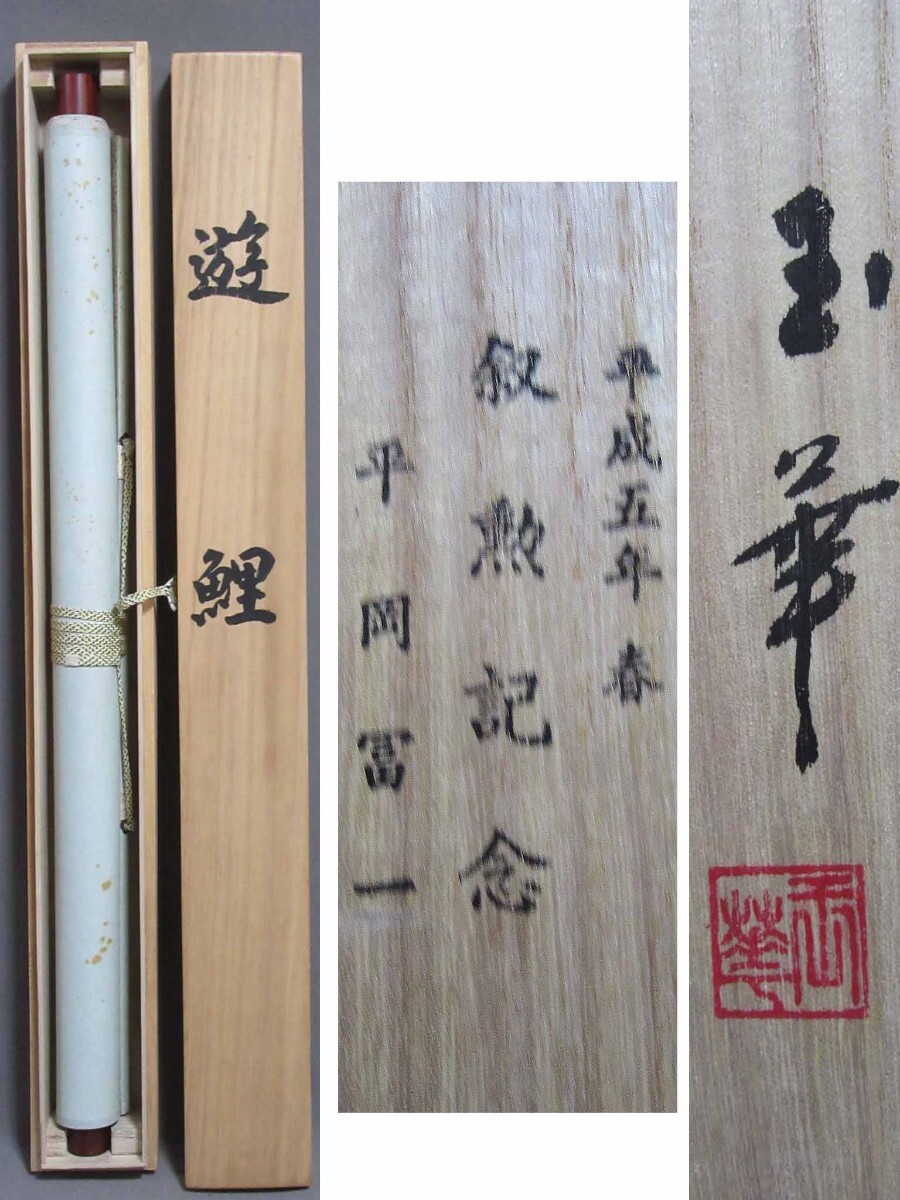 遊鯉
平成五年春
叙勲記念
平岡冨一
玉華
玉華